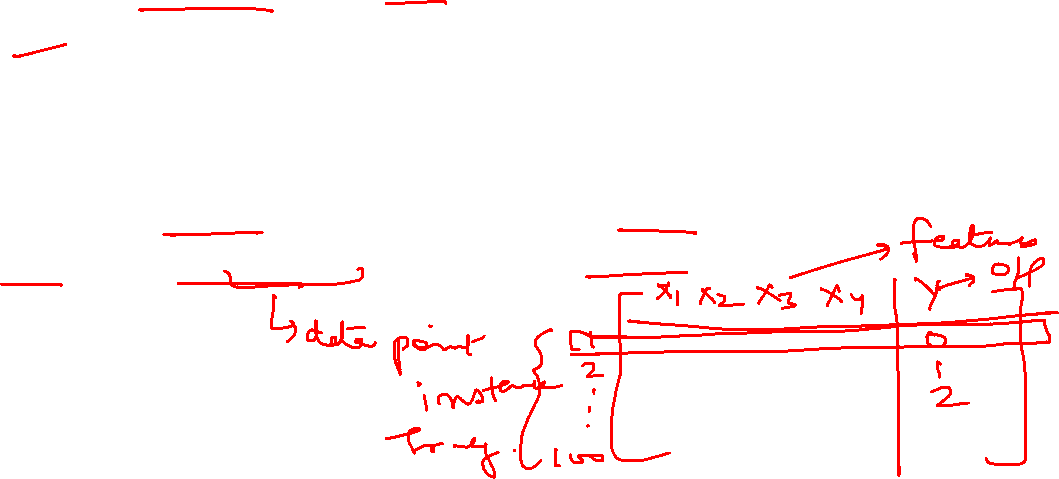 features
x1 x2 x3 x4 Y O/P
data point
0
instance
2
1
2
100